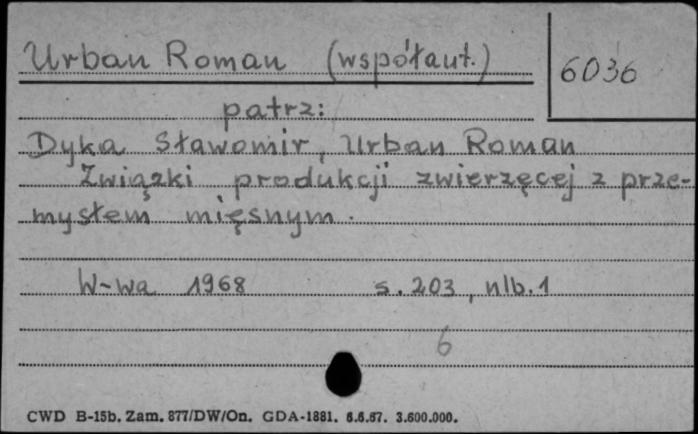 Urban Roman (współaut.) 6036
patrz:
Dyka Sławomir, Urban Roman
Związki produkcji zwierzęcej z prze-
mysłem mięsnym.
W-wa 1968 s. 203, nlb. 1
6
CWD B-15b. Zam. 877/DW/On. GDA-1881. 6.6.67. 3.600.000.